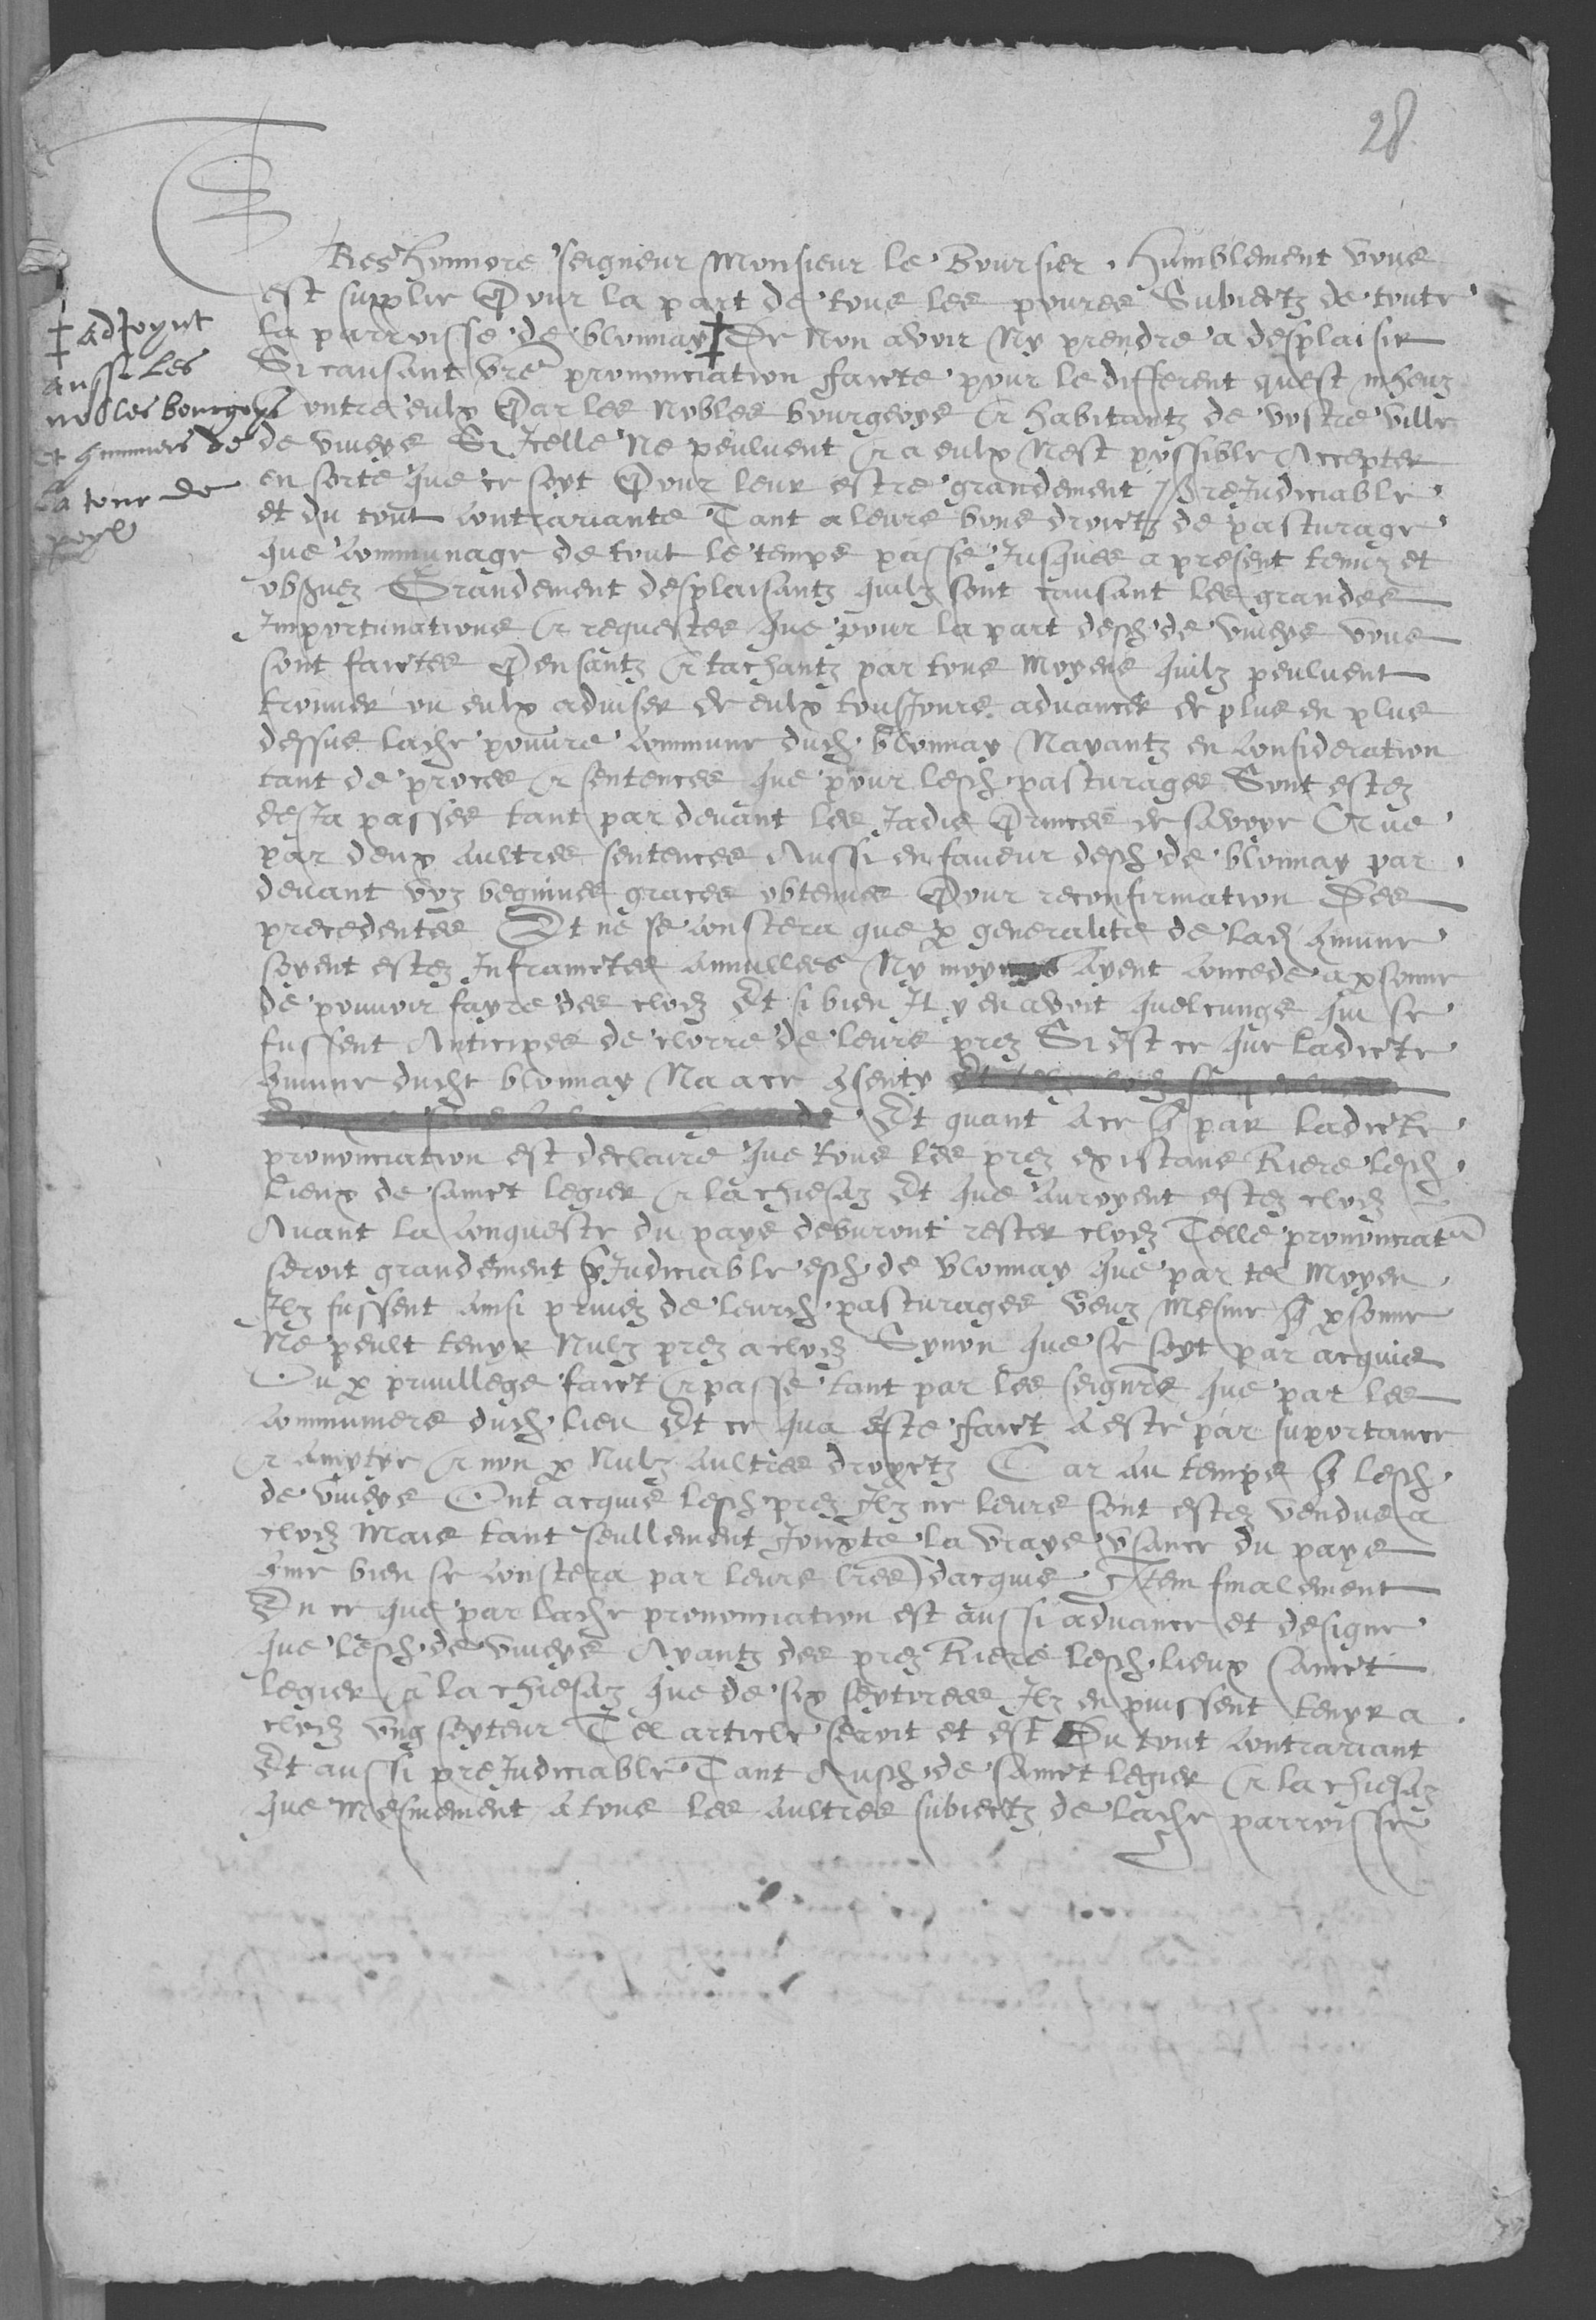 28
Tres honnore seigneur Monsieur le Boursier, humblement vous
est supplie Pour la part de tous les poures Subiectz de toute
la parroisse de blonnay ‡ De Non avoir Ny prendre a desplaisir
‡ Adjoynt
aussi les
nobles bourgoys
et cmuniers de
la tour de
peyl
Si causant vre prononciation faicte pour le different quest mheuz
Contre eulx Par les Nobles bourgeoys et habitantz de vostre ville
de viveys Si Icelle Ne peulvent et a eulx Nest possible Accepter
en sorte que ce soyt Pour leur estre grandement preJudiciable
et du tout contrariante Tant a leurs bons droictz de pasturage
que communage de tout le temps passe Jusques a present tenuz et
obseruez Grandement desplaisantz quilz sont causant les grandes
Importunations et requestes que pour la part desd. de viveys vous
sont faictes Pensantz et tachantz par tous moyens quilz peulvent
trouver ou eulx adviser de eulx tousJours advancer de plus en plus
dessus lade pouvre commune dud. blonnay Nayantz en consideration
tant de proces et sentences que pour lesd. pasturages Sont estez
desJa passes tant par devant les Jadis Princes de savoye Que
par deux aultres sentences Aussi en faveur desd. de blonnay par
devant voz beguines graces obtenues Pour reconfirmation Des
precedentes Et ne se constera que p generalite de lad. cmune
soyent estez Infrainctes annullees Ny moyns ayent concede a psonne
de pouvoir fayre des clodz Et si bien Il y en avoit quelcungs qui se
fussent Anticipes de clorre de leurs prez Si est ce que ladicte
cmune dudt blonnay Na a ce csenty
Et quant a ce q par ladicte
prononciation est declaire que tous les prez existans Riere lesd.
lieux de sainct legier et la chiesaz Et que auroyent estez clodz
Avant la conqueste du pays debvront rester clodz Telle prononciaton
seroit grandement pJudiciable esd. de blonnay que par tel moyen
Ilz fussent ainsi privez de leursd. pasturages veuz Mesme q psonne
Ne peult tenyr Nulz prez a clodz Synon que se soyt par acquis
Ou p privillege faict et passe tant par les seignrs que par les
communiers dud. lieu Et ce qua este faict a este par suportance
et amytye et non p Nulz aultres droyctz Car au temps q lesd.
de viveys Ont acquis lesd. prez Ilz ne leurs sont estez vendus a
clodz Mais tant seullement Jouxte la vraye usance du pays
cme bien se constera par leurs lres dacquis Item finalement
En ce que par lade prononciation est aussi advance et designe
que lesd. de viveys Ayantz des prez Riere lesd. lieux sainct
legier et la chiesaz que de six seytorees Ilz en puissent tenyr a
clodz ung seyteur Tel article seroit et est Du tout contrariant
Et aussi preJudiciable Tant Ausd. de sainct legier et la chiesaz
que Mesmement a tous les aultres subiectz de lade parroisse